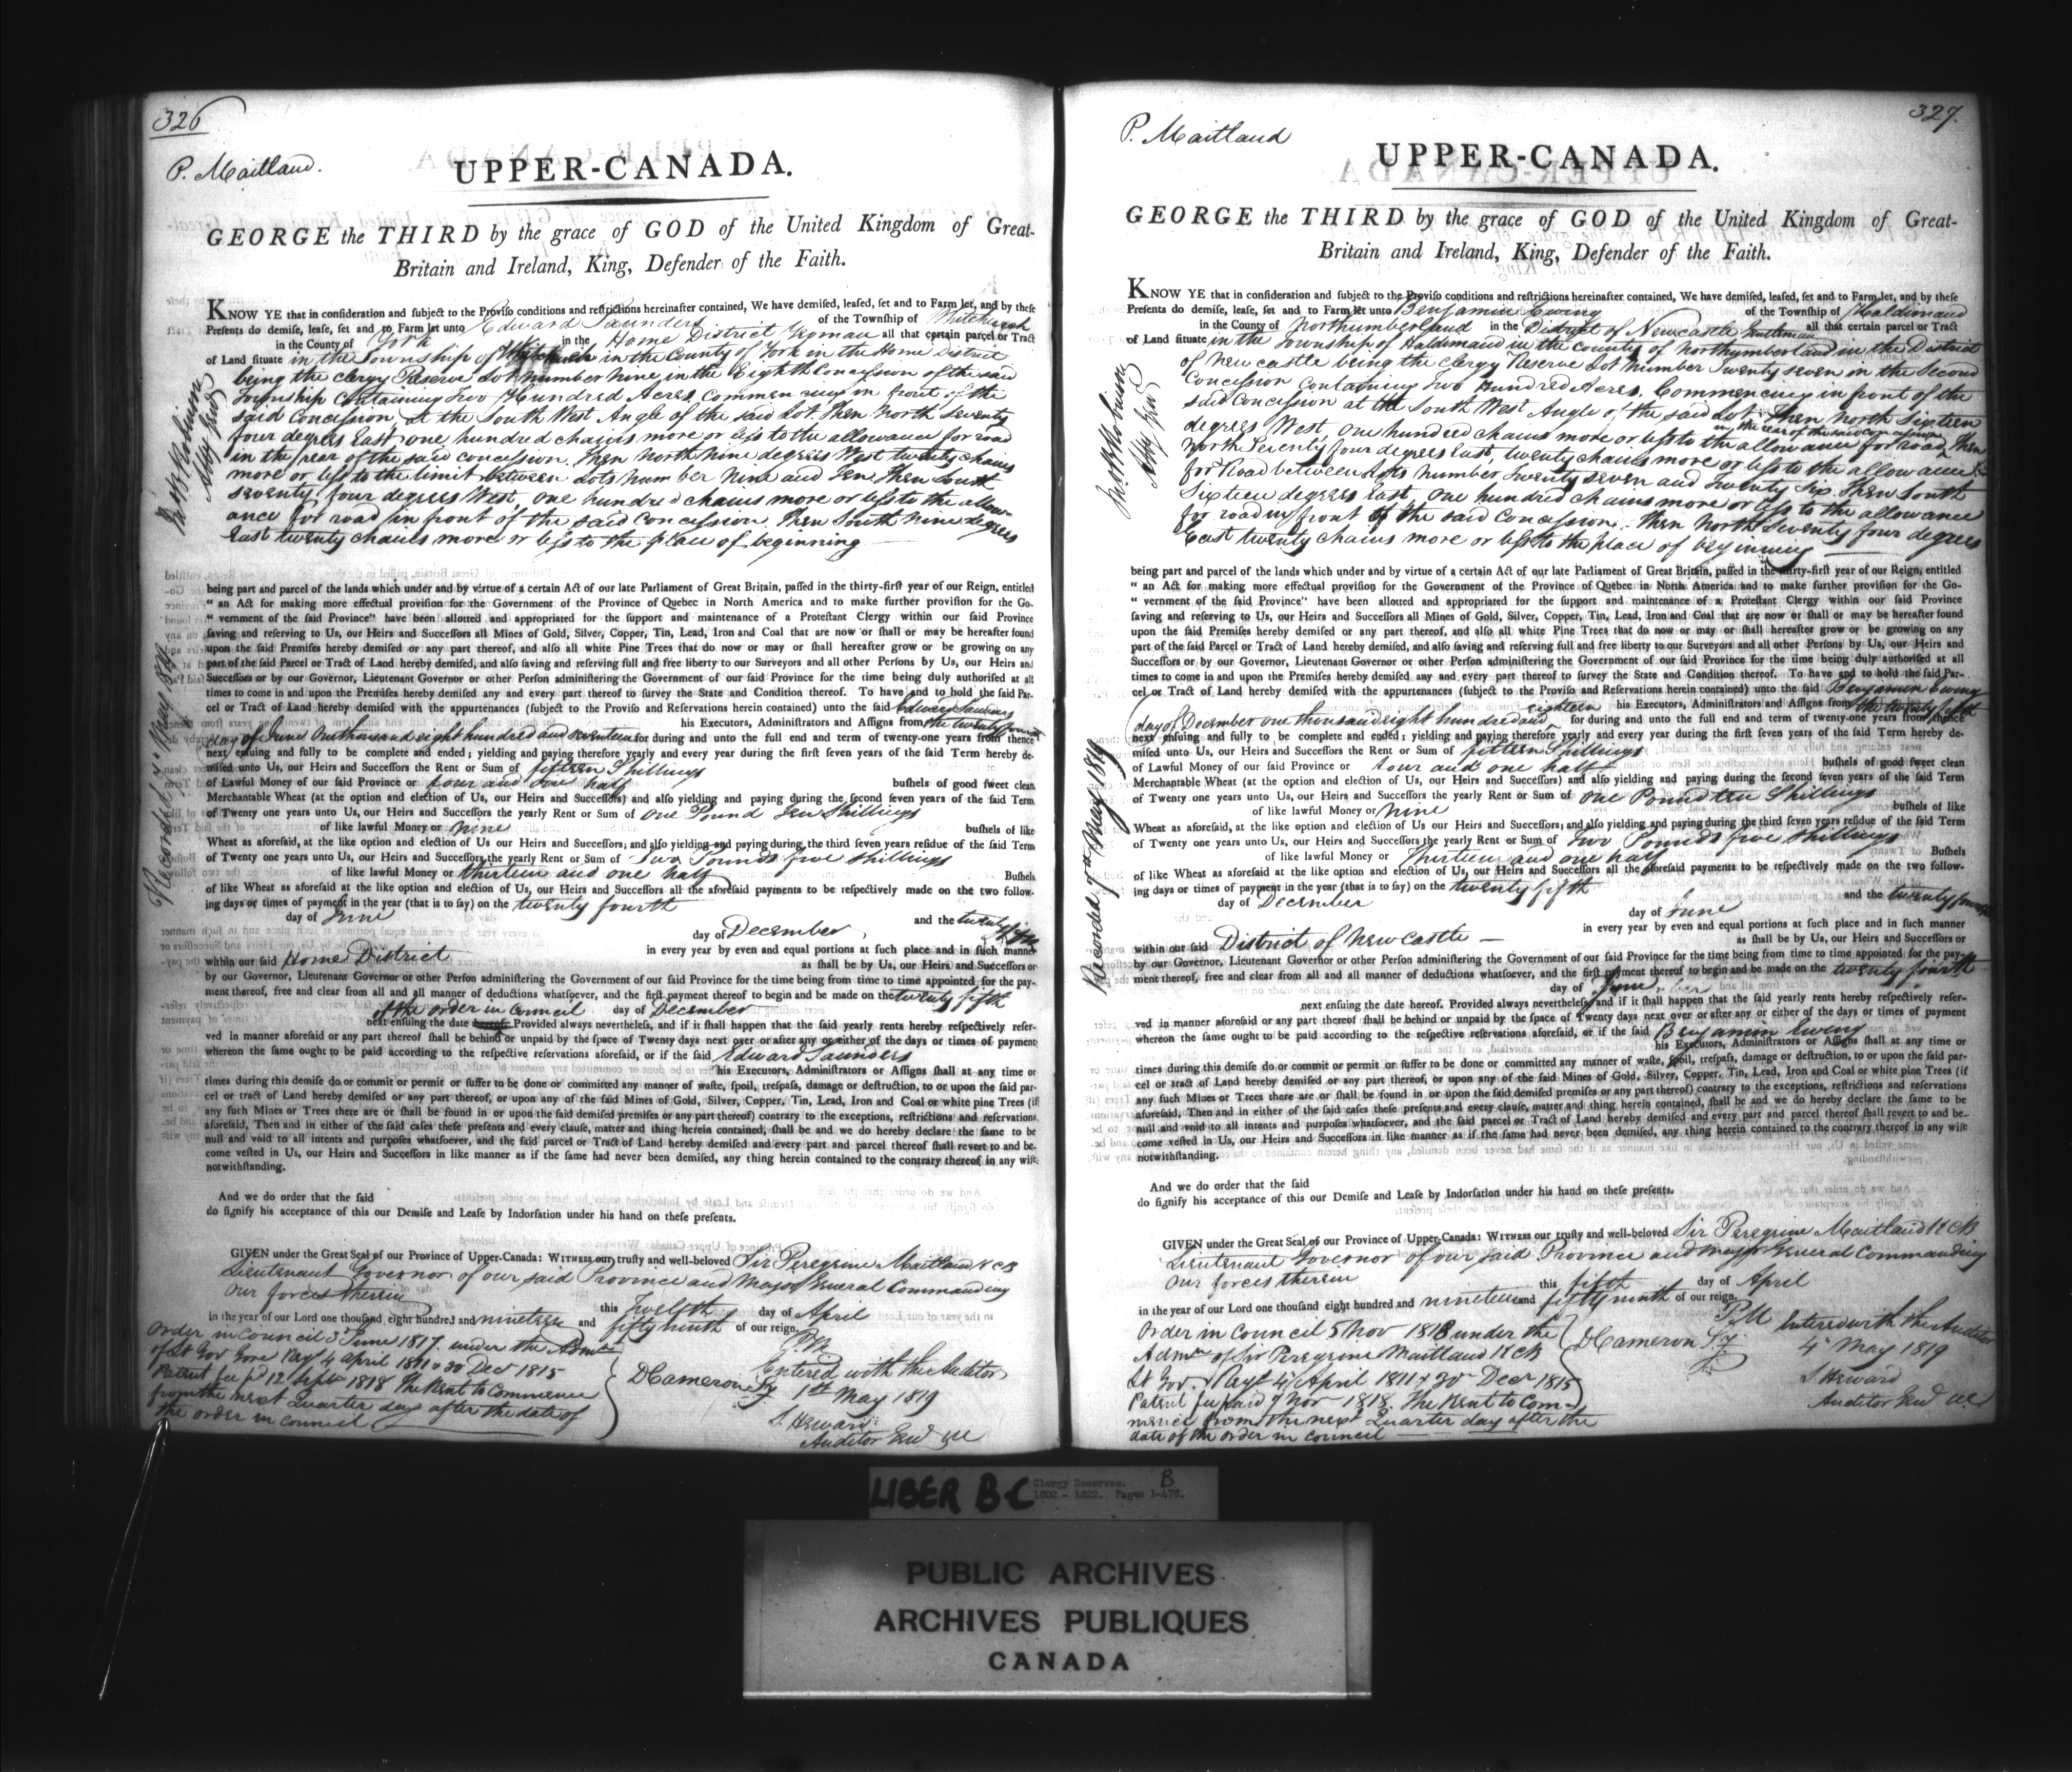 326
P. Maitland.
UPPER-CANADA.
GEORGE the THIRD by the grace of GOD of the United Kingdom of Great-
Britain and Ireland, King, Defender of the Faith.
KNOW YE that in consideration and subject to the Proviso conditions and restrictions hereinafter contained, We have demised, leased, set and to Farm let, and by these
Presents do demise, lease, set and to Farm let unto Edward Saunders of the Township of Whitchurch
in the County of York in the Home District Yeoman all that certain parcel or Tract
of Land situate in the Township of Whitchurch in the County of York in the Home District
being the Clergy Reserve Lot number Nine in the Eighth Concession of the said
Township Containing Two Hundred Acres, Commencing in front of the
said Concession, at the South West Angle of the said Lot. Then North Seventy
four degrees East, one hundred chains more or less to the allowance for road
in the rear of the said concession. Then North Nine degrees West twenty chains
more or less to the limit between Lots number Nine and Ten. Then South
seventy four degrees West, one hundred chains more or less to the allow-
ance for road in front of the said Concession. Then South Nine degrees
East twenty chains more or less to the place of beginning
Jno B Robinson
Atty Genl
being part and parcel of the lands which under and by virtue of a certain Act of our late Parliament of Great Britain, passed in the thirty-first year of our Reign, entitled
" an Act for making more effectual provision for the Government of the Province of Quebec in North America and to make further provision for the Go-
" vernment of the said Province" have been allotted and appropriated for the support and maintenance of a Protestant Clergy within our said Province
saving and reserving to Us, our Heirs and Successors all Mines of Gold, Silver, Copper, Tin, Lead, Iron and Coal that are now or shall or may be hereafter found
upon the said Premises hereby demised or any part thereof, and also all white Pine Trees that do now or may or shall hereafter grow or be growing on any
part of the said Parcel or Tract of Land hereby demised, and also saving and reserving full and free liberty to our Surveyors and all other Persons by Us, our Heirs and
Successors or by our Governor, Lieutenant Governor or other Person administering the Government of our said Province for the time being duly authorised at all
times to come in and upon the Premises hereby demised any and every part thereof to survey the State and Condition thereof. To have and to hold the said Par-
cel or Tract of Land hereby demised with the appurtenances (subject to the Proviso and Reservations herein contained) unto the said Edward Saunders
his Executors, Administrators and Assigns from the twenty fourth
day of June One thousand eight hundred and seventeen for during and unto the full end and term of twenty-one years from thence
next ensuing and fully to be complete and ended; yielding and paying therefore yearly and every year during the first seven years of the said Term hereby de-
mised unto Us, our Heirs and Successors the Rent or Sum of fifteen Shillings
of Lawful Money of our said Province or four and one half bushels of good sweet clean
Merchantable Wheat (at the option and election of Us, our Heirs and Successors) and also yielding and paying during the second seven years of the said Term
of Twenty one years unto Us, our Heirs and Successors the yearly Rent or Sum of One Pound Ten Shillings
of like lawful Money or nine bushels of like
Wheat as aforesaid, at the like option and election of Us our Heirs and Successors; and also yielding and paying during the third seven years residue of the said Term
of Twenty one years unto Us, our Heirs and Successors the yearly Rent or Sum of Two Pounds five shillings
of like lawful Money or thirteen and one half Bushels
of like Wheat as aforesaid at the like option and election of Us, our Heirs and Successors all the aforesaid payments to be respectively made on the two follow-
ing days or times of payment in the year (that is to say) on the twenty fourth
day of June and the twenty fifth
day of December,
in every year by even and equal portions at such place and in such manner
within our said Home District as shall be by Us, our Heirs and Successors or
by our Governor, Lieutenant Governor or other Person administering the Government of our said Province for the time being from time to time appointed for the pay-
ment thereof, free and clear from all and all manner of deductions whatsoever, and the first payment thereof to begin and be made on the twenty fifth
of the order in Council day of December
next ensuing the date hereof. Provided always nevertheless, and if it shall happen that the said yearly rents hereby respectively reser-
ved in manner aforesaid or any part thereof shall be behind or unpaid by the space of Twenty days next over or after any or either of the days or times of payment
whereon the same ought to be paid according to the respective reservations aforesaid, or if the said Edward Saunders
his Executors, Administrators or Assigns shall at any time or
times during this demise do or commit or permit or suffer to be done or committed any manner of waste, spoil, trespass, damage or destruction, to or upon the said par-
cel or tract of Land hereby demised or any part thereof, or upon any of the said Mines of Gold, Silver, Copper, Tin, Lead, Iron and Coal or white pine Trees (if
any such Mines or Trees there are or shall be found in or upon the said demised premises or any part thereof) contrary to the exceptions, restrictions and reservations
aforesaid, Then and in either of the said cases these presents and every clause, matter and thing herein contained, shall be and we do hereby declare the same to be
null and void to all intents and purposes whatsoever, and the said parcel or Tract of Land hereby demised and every part and parcel thereof shall revert to and be-
come vested in Us, our Heirs and Successors in like manner as if the same had never been demised, any thing herein contained to the contrary thereof in any wise
notwithstanding.
Recorded 4th May 1819
And we do order that the said
do signify his acceptance of this our Demise and Lease by Indorsation under his hand on these presents.
GIVEN under the Great Seal of our Province of Upper-Canada: WITNESS our trusty and well-beloved Sir Peregrine Maitland KCB
Lieutenant Governor of our said Province and Major General Commanding
Our forces therein
this Twelfth day of April
in the year of our Lord one thousand eight hundred and nineteen and fifty ninth of our reign.
P.M
Order in Council 3d June 1817. under the Admn
of Lt Gov Gore Regs 4 April 1811 & 30 Decr 1815
Patent fee pd 12 Septr 1818 The Rent to Commence
from the next Quarter day after the date of
the order in council
DCameron Sy.
Entered with the Auditor
1st May 1819
S. Heward
Auditor Genl UC
327.
P. Maitland
UPPER-CANADA.
GEORGE the THIRD by the grace of GOD of the United Kingdom of Great-
Britain and Ireland, King, Defender of the Faith.
KNOW YE that in consideration and subject to the Proviso conditions and restrictions hereinafter contained, We have demised, leased, set and to Farm let, and by these
Presents do demise, lease, set and to Farm let unto Benjamin Ewing of the Township of Haldimand
in the County of Northumberland in the District of Newcastle Gentleman all that certain parcel or Tract
of Land situate in the Township of Haldimand in the county of Northumberland in the District
of Newcastle being the Clergy Reserve Lot Number Twenty seven in the Second
Concession containing Two Hundred Acres. Commencing in front of the
said Concession at the South West Angle of the said Lot. Then North Sixteen
degrees West, One hundred chains more or less to the allowance for road in the rear of the said concession, Then
North Seventy four degrees East, twenty chains more or less to the allowance
for Road between Lots Number Twenty seven and Twenty Six. Then South
Sixteen degrees East, One hundred chains more or less to the allowance
for road in front of the said Concession. Then North Seventy four degrees
East twenty chains more or less to the place of beginning
Jno B Robinson
Atty Genl
being part and parcel of the lands which under and by virtue of a certain Act of our late Parliament of Great Britain, passed in the thirty-first year of our Reign, entitled
" an Act for making more effectual provision for the Government of the Province of Quebec in North America and to make further provision for the Go-
" vernment of the said Province" have been allotted and appropriated for the support and maintenance of a Protestant Clergy within our said Province
saving and reserving to Us, our Heirs and Successors all Mines of Gold, Silver, Copper, Tin, Lead, Iron and Coal that are now or shall or may be hereafter found
upon the said Premises hereby demised or any part thereof, and also all white Pine Trees that do now or may or shall hereafter grow or be growing on any
part of the said Parcel or Tract of Land hereby demised, and also saving and reserving full and free liberty to our Surveyors and all other Persons by Us, our Heirs and
Successors or by our Governor, Lieutenant Governor or other Person administering the Government of our said Province for the time being duly authorised at all
times to come in and upon the Premises hereby demised any and every part thereof to survey the State and Condition thereof. To have and to hold the said Par-
cel or Tract of Land hereby demised with the appurtenances (subject to the Proviso and Reservations herein contained) unto the said Benjamin Ewing
his Executors, Administrators and Assigns from the twenty fifth
day of December one thousand eight hundred and eighteen for during and unto the full end and term of twenty-one years from thence
next ensuing and fully to be complete and ended; yielding and paying therefore yearly and every year during the first seven years of the said Term hereby de-
mised unto Us, our Heirs and Successors the Rent or Sum of fifteen Shillings
of Lawful Money of our said Province or four and one half bushels of good sweet clean
Merchantable Wheat (at the option and election of Us, our Heirs and Successors) and also yielding and paying during the second seven years of the said Term
of Twenty one years unto Us, our Heirs and Successors the yearly Rent or Sum of One Pound ten Shillings
of like lawful Money or Nine bushels of like
Wheat as aforesaid, at the like option and election of Us our Heirs and Successors; and also yielding and paying during the third seven years residue of the said Term
of Twenty one years unto Us, our Heirs and Successors the yearly Rent or Sum of Two Pounds five Shillings
of like lawful Money or Thirteen and one half Bushels
of like Wheat as aforesaid at the like option and election of Us, our Heirs and Successors all the aforesaid payments to be respectively made on the two follow-
ing days or times of payment in the year (that is to say) on the twenty fifth
day of December and the twenty fourth
day of June
in every year by even and equal portions at such place and in such manner
within our said District of Newcastle — as shall be by Us, our Heirs and Successors or
by our Governor, Lieutenant Governor or other Person administering the Government of our said Province for the time being from time to time appointed for the pay-
ment thereof, free and clear from all and all manner of deductions whatsoever, and the first payment thereof to begin and be made on the twenty fourth
day of June
next ensuing the date hereof. Provided always nevertheless, and if it shall happen that the said yearly rents hereby respectively reser-
ved in manner aforesaid or any part thereof shall be behind or unpaid by the space of Twenty days next over or after any or either of the days or times of payment
whereon the same ought to be paid according to the respective reservations aforesaid, or if the said Benjamin Ewing
his Executors, Administrators or Assigns shall at any time or
times during this demise do or commit or permit or suffer to be done or committed any manner of waste, spoil, trespass, damage or destruction, to or upon the said par-
cel or tract of Land hereby demised or any part thereof, or upon any of the said Mines of Gold, Silver, Copper, Tin, Lead, Iron and Coal or white pine Trees (if
any such Mines or Trees there are or shall be found in or upon the said demised premises or any part thereof) contrary to the exceptions, restrictions and reservations
aforesaid, Then and in either of the said cases these presents and every clause, matter and thing herein contained, shall be and we do hereby declare the same to be
null and void to all intents and purposes whatsoever, and the said parcel or Tract of Land hereby demised and every part and parcel thereof shall revert to and be-
come vested in Us, our Heirs and Successors in like manner as if the same had never been demised, any thing herein contained to the contrary thereof in any wise
notwithstanding.
Recorded 7th May 1819
And we do order that the said
do signify his acceptance of this our Demise and Lease by Indorsation under his hand on these presents.
GIVEN under the Great Seal of our Province of Upper-Canada: WITNESS our trusty and well-beloved Sir Peregrine Maitland KCB
Lieutenant Governor of our said Province and Major General Commanding
Our forces therein
this fifth day of April
in the year of our Lord one thousand eight hundred and nineteen and fifty ninth of our reign.
P.M
Order in Council 5 Nov 1818 under the
Admn of Sir Peregrine Maitland KCB
Lt Gov. Regs 4 April 1811 & 30 Decr 1815
Patent fee paid 7 Nov 1818. The Rent to Com-
mence from the next Quarter day after the
date of the order in council
DCameron Sy
Entered with the Auditor
4th May 1819
S Heward
Auditor Genl UC
LIBER B-C
Clergy Reserves. B
1802 - 1822. Pages 1-478.
PUBLIC ARCHIVES
ARCHIVES PUBLIQUES
CANADA